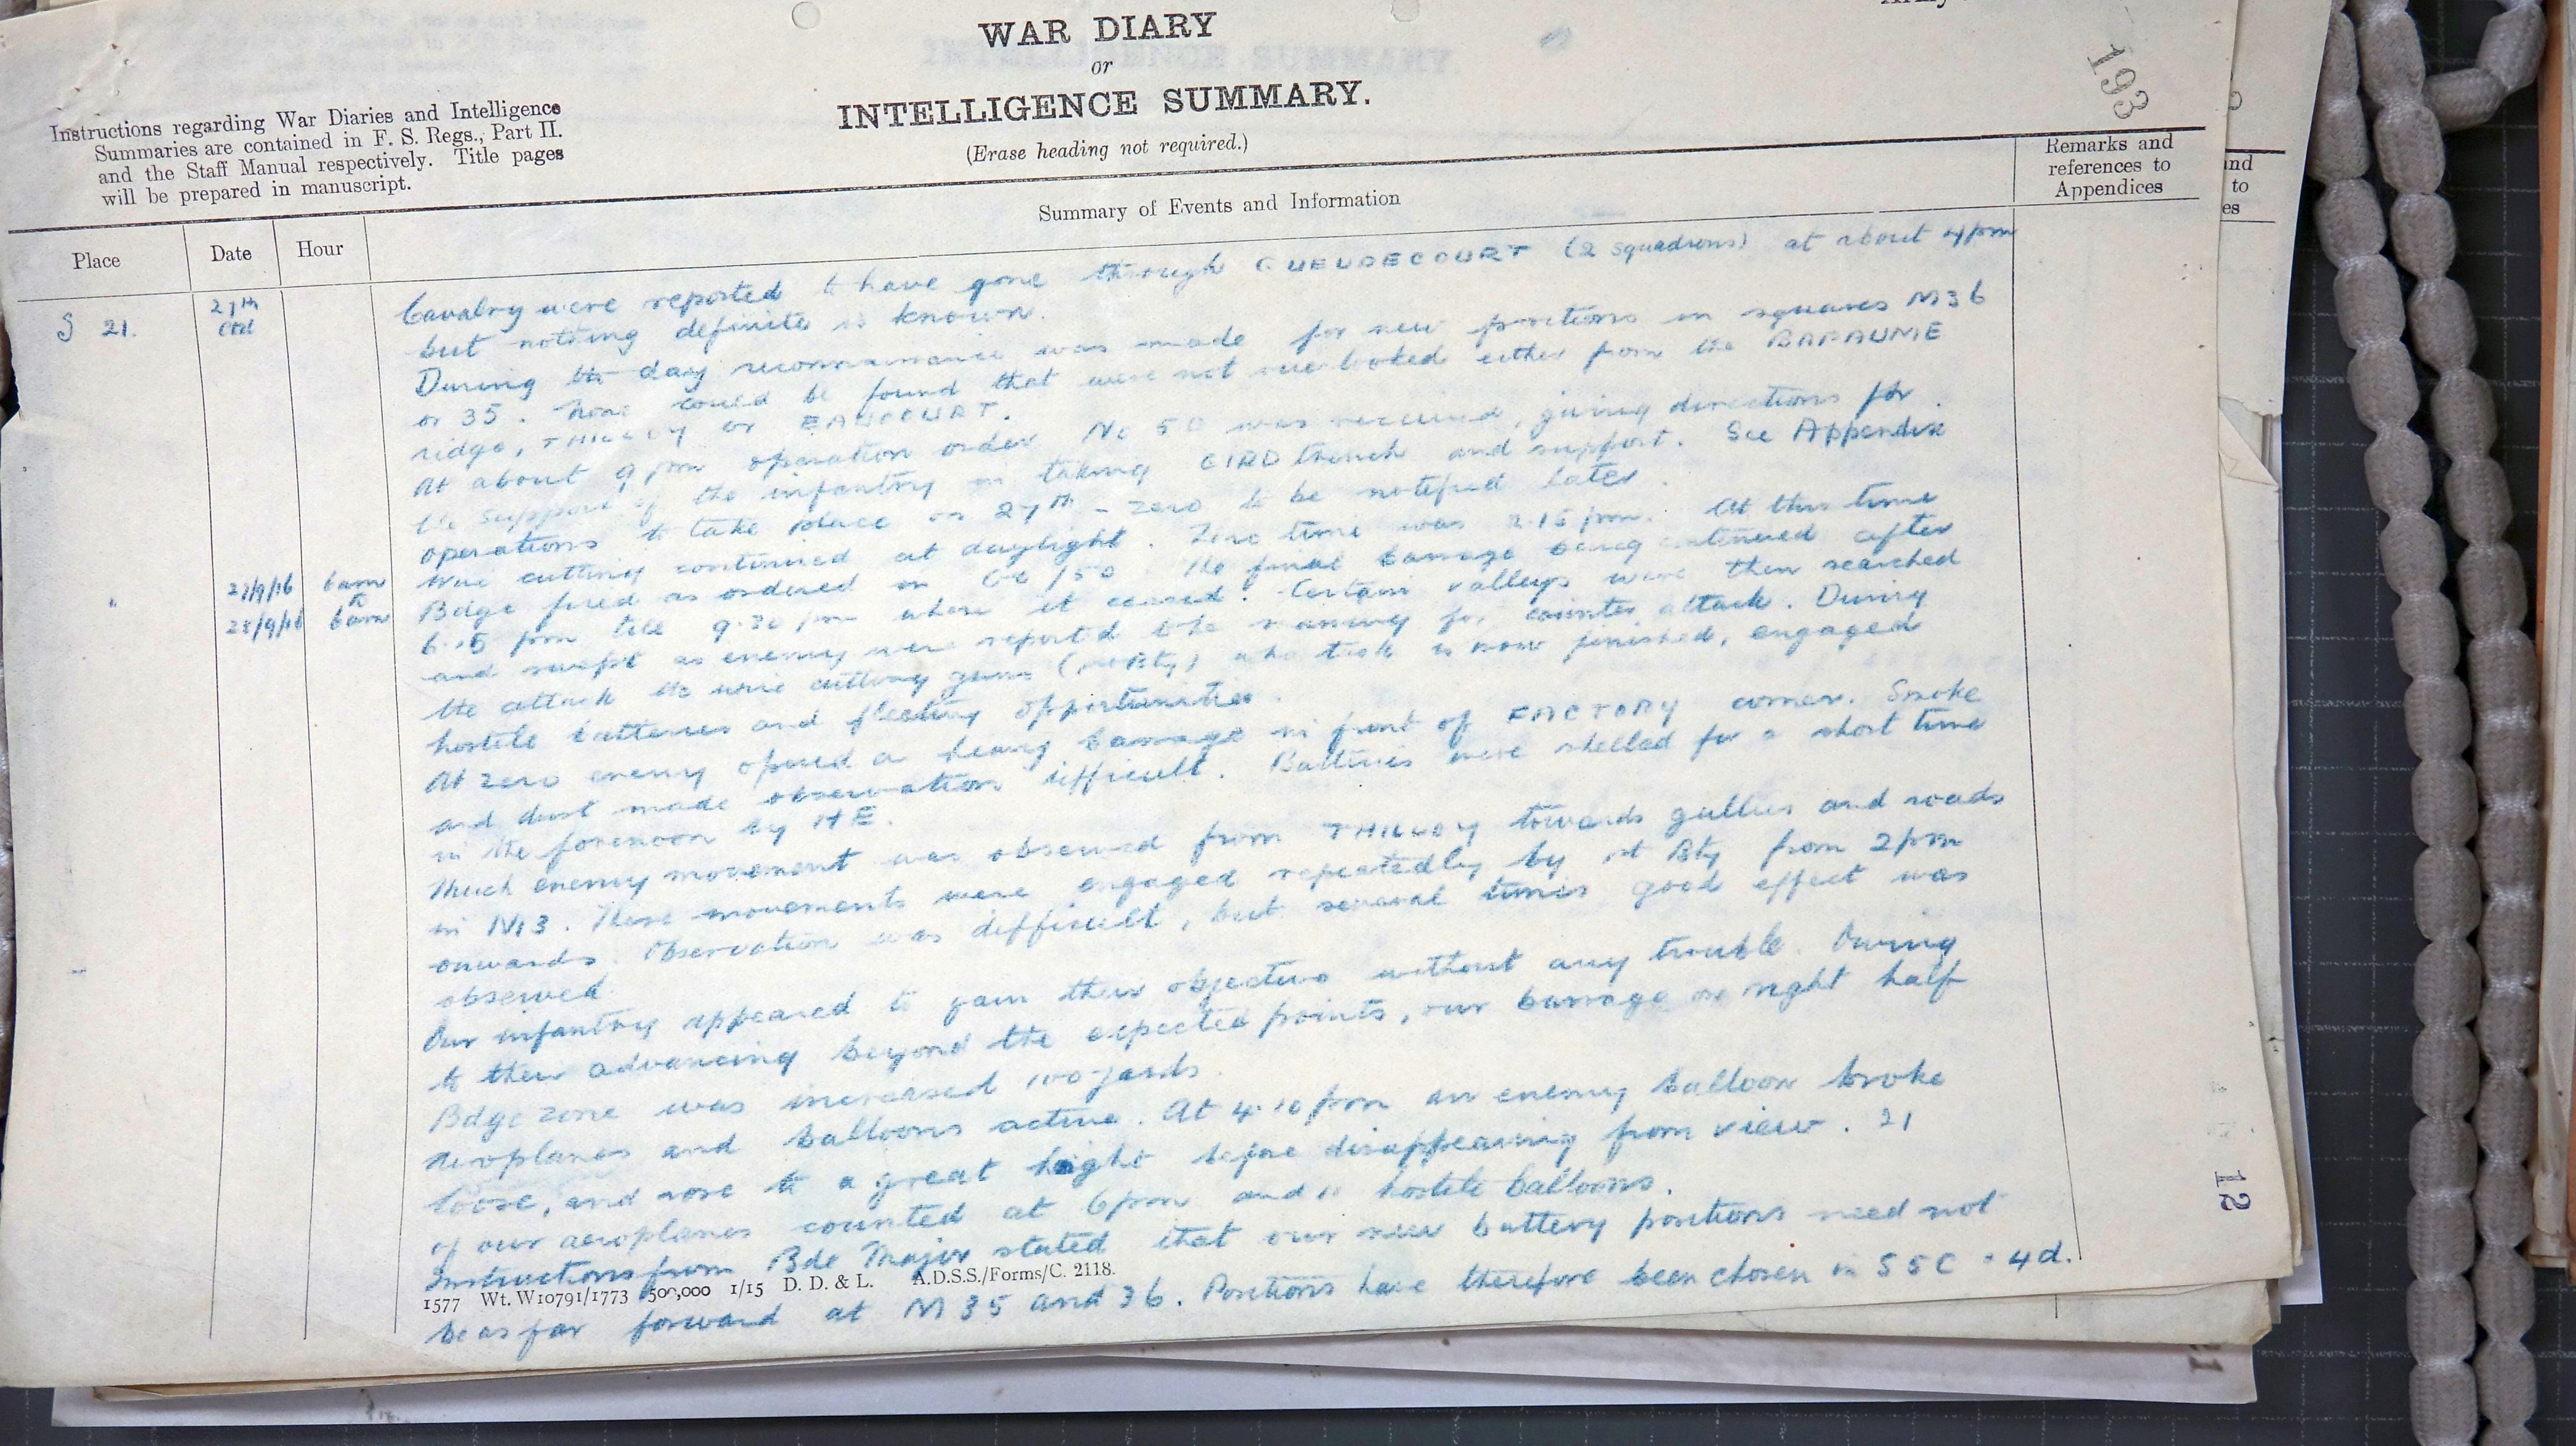 WAR DIARY
or
INTELLIGENCE SUMMARY.
(Erase heading not required.)
193
Instructions regarding War Diaries and Intelligence
Summaries are contained in F. S. Regs., Part II.
and the Staff Manual respectively. Title pages
will be prepared in manuscript.
Place
Date
Hour
Summary of Events and Information
Remarks and
references to
Appendices
S 21.
27th
Cavalry were reported to have gone through GUEUDECOURT (2 squadrons) at about 4 pm
but nothing definite is known.
During the day reconnaissance was made for new positions in squares M 36
or 35. None could be found that were not overlooked either from the BAPAUME
ridge, THILLOY or EAUCOURT.
At about 9 pm operation order No 50 was received, giving directions for
the support of the infantry in taking GIRD trench and support. See Appendix
operations to take place on 27th - zero to be notified later.
"
27/9/16 6am
to
28/9/16 6am
Wire cutting continued at daylight. Zero time was 2.15 pm. At this time
Bdge fired as ordered in OO/50. The final barrage being continued after
6.15 pm till 9.30 pm when it ceased. Certain valleys were then searched
and swept as enemy were reported to be massing for counter attack. During
the attack the wire cutting guns ( Bty) task is now finished, engaged
hostile batteries and fleeting opportunities.
At zero enemy opened a heavy barrage in front of FACTORY corner. Smoke
and dust made observation difficult. Batteries were shelled for a short time
in the forenoon by HE.
Much enemy movement was observed from THILLOY towards gullies and roads
in N13. These movements were engaged repeatedly by Bty from 2 pm
onwards. Observation was difficult, but several times good effect was
observed.
Our infantry appeared to gain their objective without any trouble. Owing
to their advancing beyond the expected points, our barrage on right half
Bdge zone was increased 100 yards.
Aeroplanes and balloons active. At 4.10 pm an enemy balloon broke
loose, and rose to a great height before disappearing from view. 21
of our aeroplanes counted at 6 pm and 11 hostile balloons.
Instructions from Bde Major stated that our new battery positions need not
1577 Wt. W10791/1773 500,000 1/15 D. D. & L. A.D.S.S./Forms/C. 2118.
be as far forward as M 35 and 36. Positions have therefore been chosen in S 5 C 4 d.
12